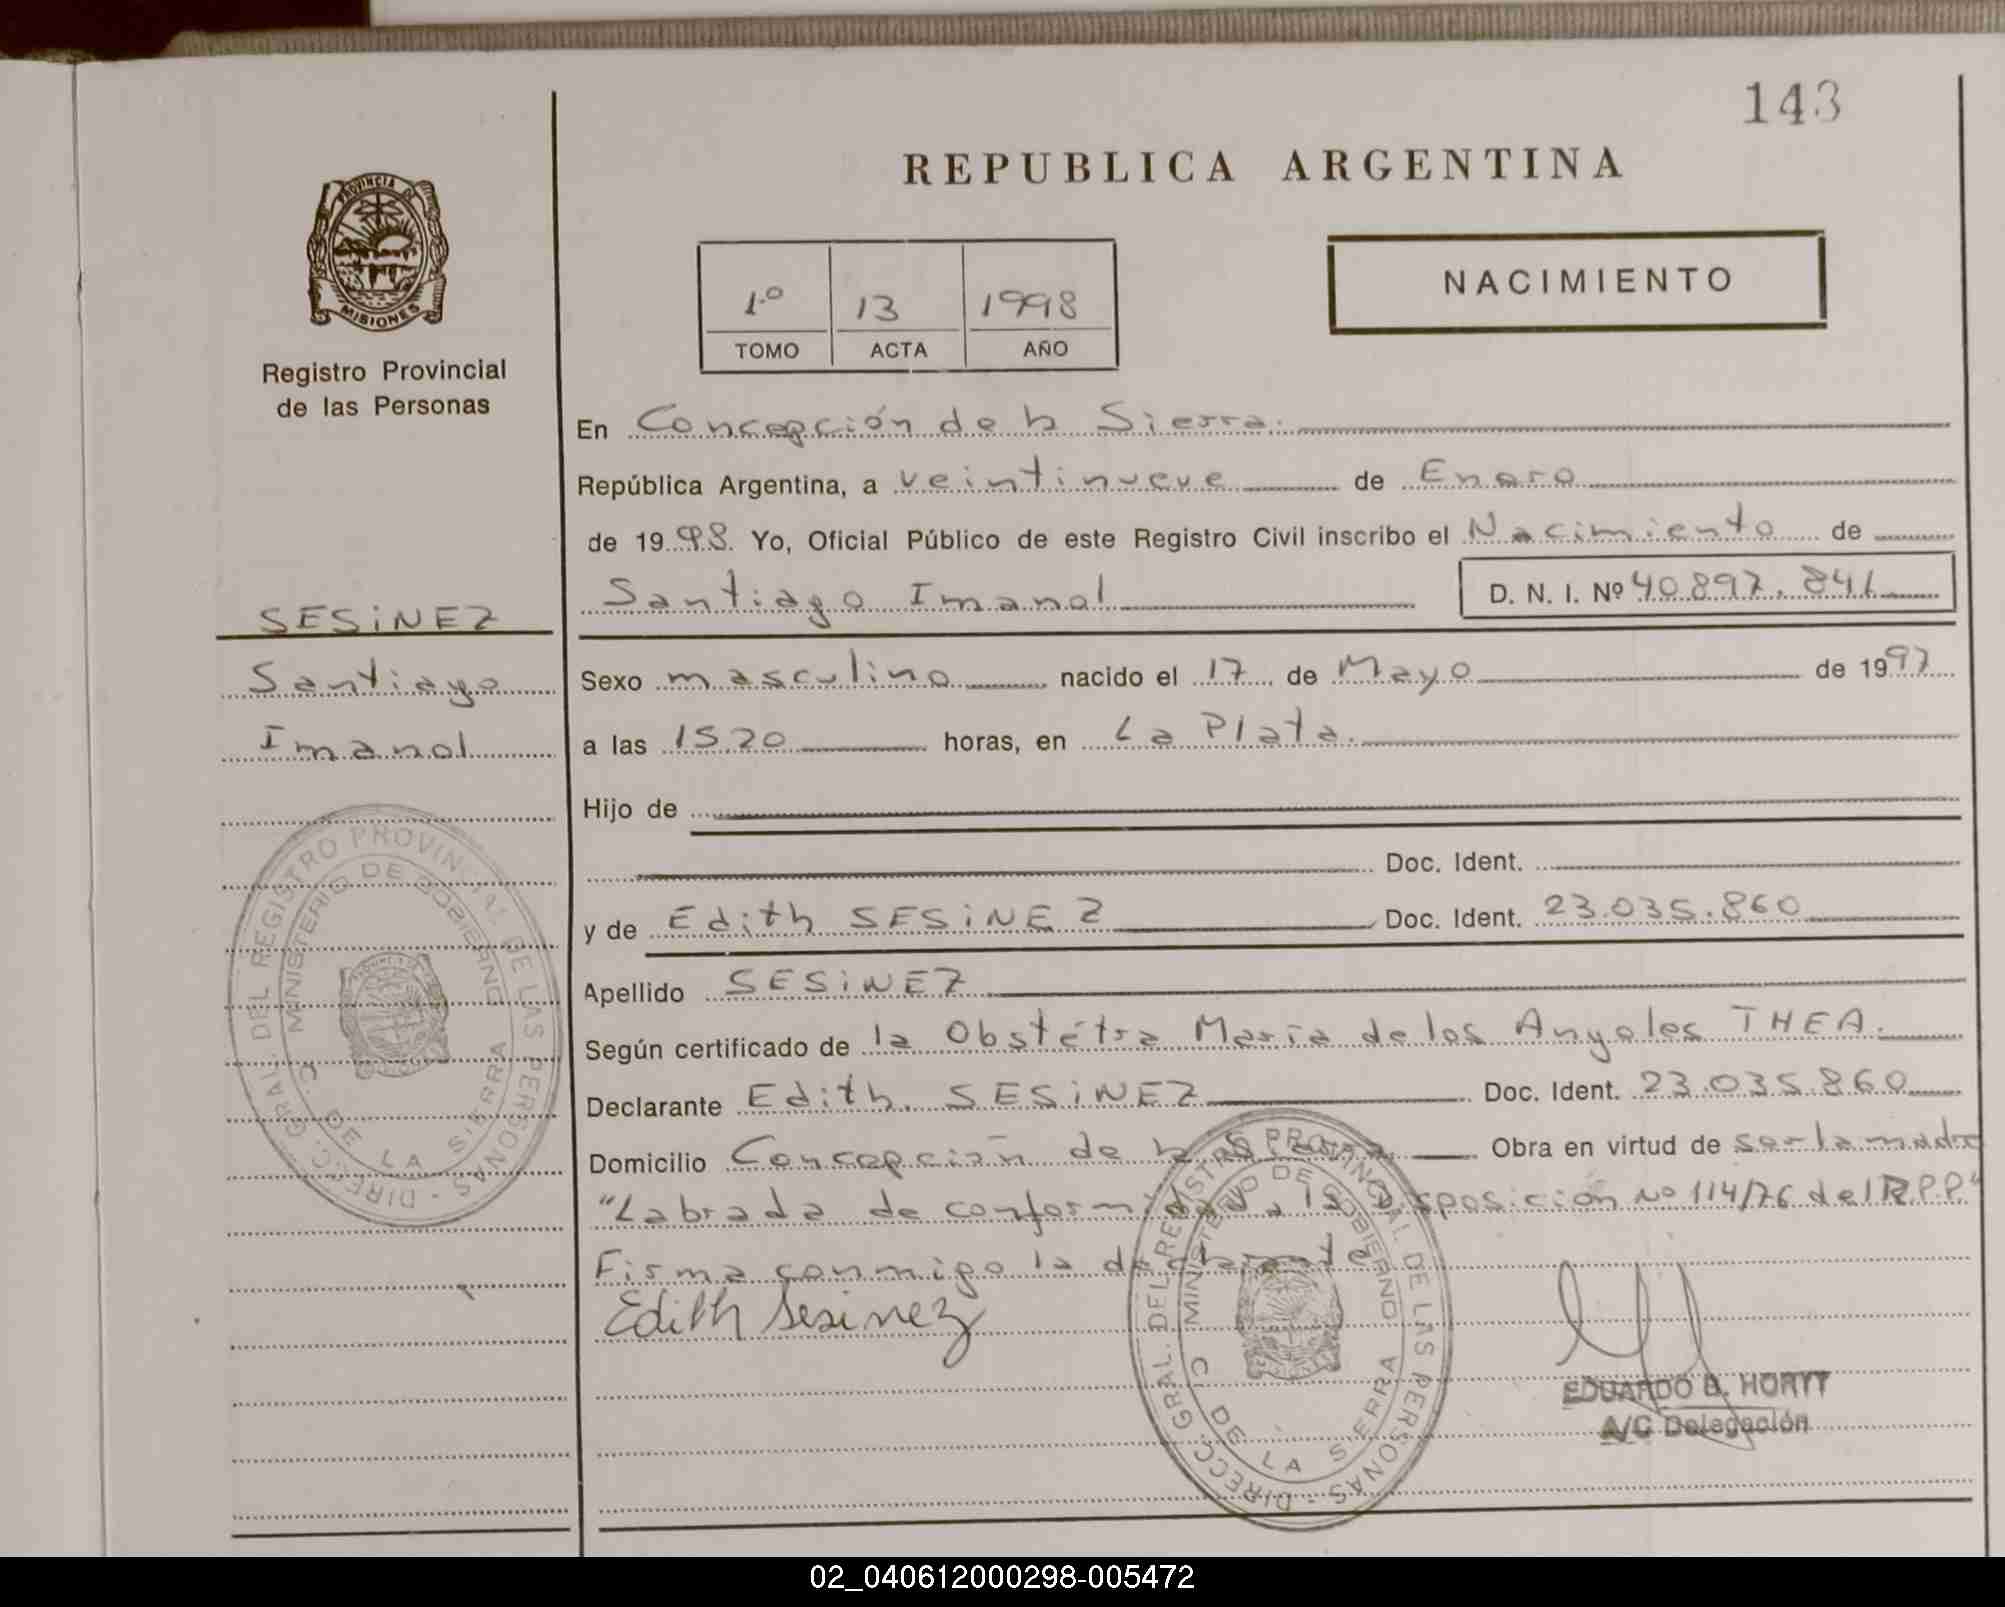 143
REPUBLICA ARGENTINA
PROVINCIA DE
MISIONES
Registro Provincial
de las Personas
NACIMIENTO
1º 13 1998
TOMO ACTA AÑO
En Concepción de la Sierra.
República Argentina, a veintinueve de Enero
de 1998. Yo, Oficial Público de este Registro Civil inscribo el Nacimiento de
Santiago Imanol D. N. I. Nº 40.897.841
SESiNEZ
Santiago
Imanol
Sexo masculino nacido el 17 de Mayo de 1997
a las 15.20 horas, en La Plata.
Hijo de
Doc. Ident.
y de Edith SESiNEZ Doc. Ident. 23.035.860
Apellido SESiNEZ
Según certificado de la Obstétra María de los Angeles THEA.
Declarante Edith SESiNEZ Doc. Ident. 23.035.860
Domicilio Concepción de la Sierra Obra en virtud de ser la madre
"Labrada de conformidad a la Disposición Nº 114/76 del R.P.P."
Firma conmigo la declarante
Edith Sesinez
EDUARDO B. HORTT
A/C Delegación
DIRECC. GRAL. DEL REGISTRO PROVINCIAL DE LAS PERSONAS
MINISTERIO DE GOBIERNO
C. DE LA SIERRA
DIRECC. GRAL. DEL REGISTRO PROVINCIAL DE LAS PERSONAS
MINISTERIO DE GOBIERNO
C. DE LA SIERRA
02_040612000298-005472